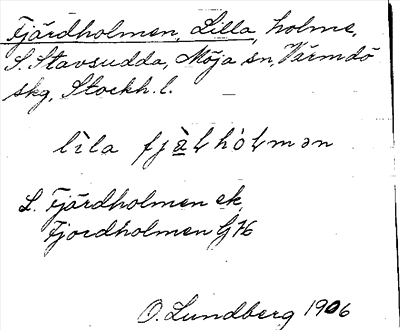 Fjärdholmen, Lilla, holme,
S. Stavsudda, Möja sn, Värmdö
skg, Stockh. l.
lìla fjàɽhòɽmən
L. Fjärdholmen ek,
Fjordholmen GK
O. Lundberg 1906